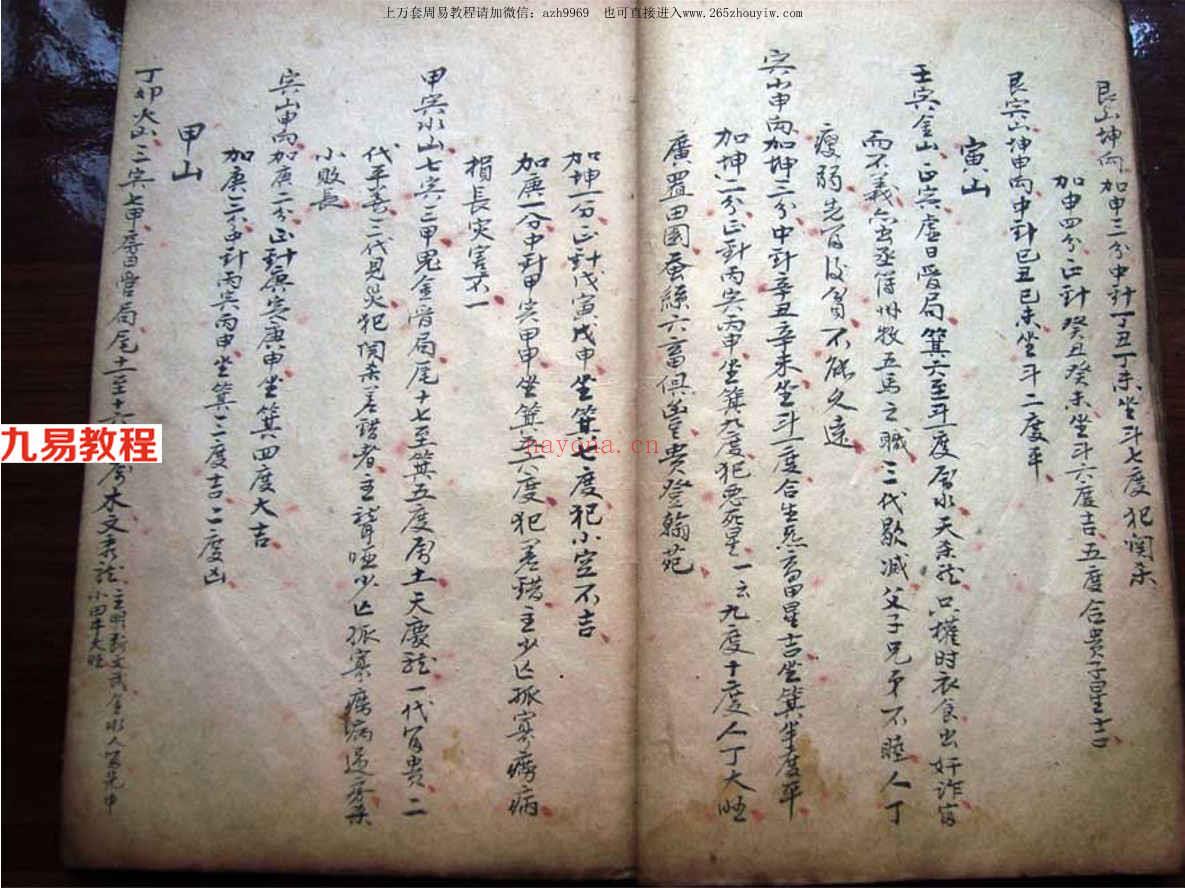 上万套周易教程请加微信：azh9969　也可直接进入www.265zhouyiw.com
艮山坤向加申三分中針丁丑丁未坐斗七度犯関杀
加申四分正針癸丑癸未坐斗六度吉五度合貴子星吉
艮寅山坤申向中針己丑己未坐斗二度平
寅山
壬寅金山正寅虚日管局箕六至斗一度屬水天杀龍只權时衣食出奸詐富
而不義出丞薄州牧五馬之職三代歇减父子兄弟不睦人丁
瘦弱先富後貧不能久遠
寅山申向加坤三分中針辛丑辛未坐斗一度合生炁高甲星吉坐箕半度平
加坤二分正針丙寅丙申坐箕九度犯惡死星一云九度十度人丁大旺
廣置田園蚕絲六畜俱𭁈貴登翰苑
加坤一分正針戊寅戊申坐箕七度犯小空不吉
加庚一分中針甲寅甲申坐箕五六度犯差錯主少亡孤寡癆病
損長灾害不一
甲寅水山七寅三甲鬼金管局尾十七至箕五度屬土天慶龍一代富貴二
代平
三代見災犯関杀差錯者主聾啞少亡孤寡瘋病
小敗長
寅山申向加庚二分正針庚寅庚申坐箕四度大吉
加庚三分中針丙寅丙申坐箕三度吉二度凶
甲山
丁卯火山三寅七甲房日管局尾十一至十六屬木文秀龍
小田牛大旺
九易教程
nayona.cn